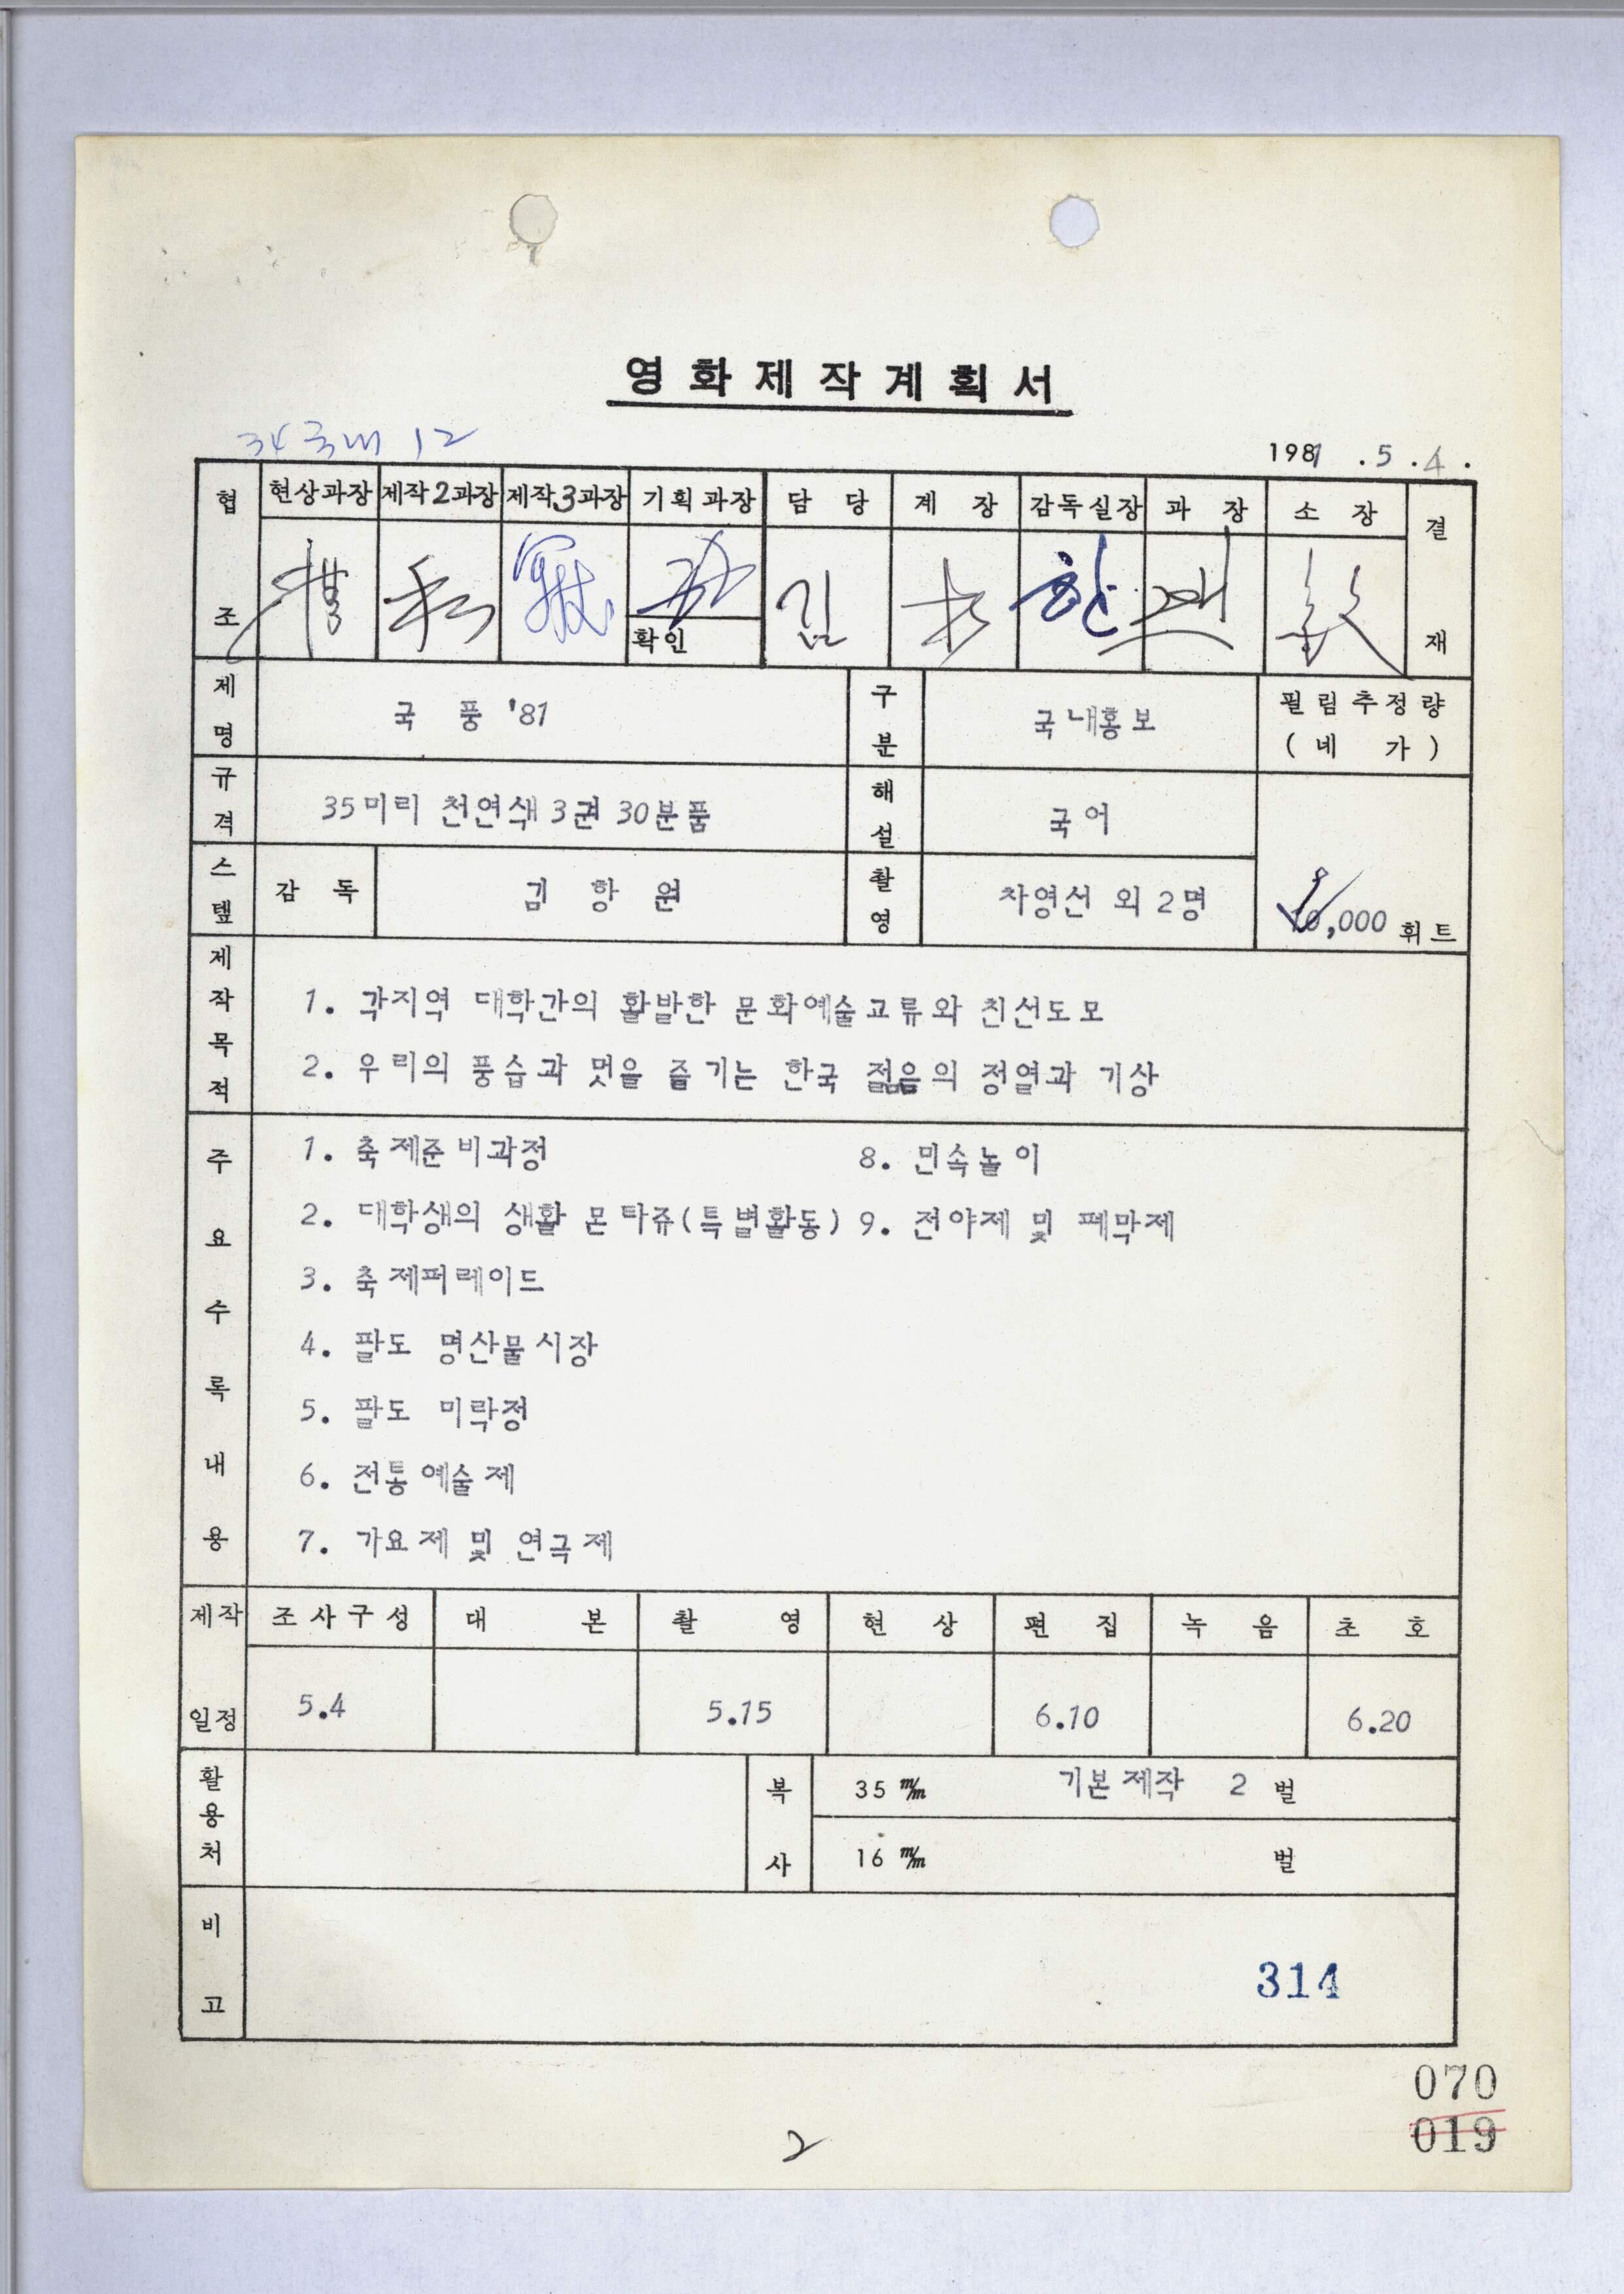 영화제작계획서
34 국내 12
1981 . 5 . 4 .
협조 현상과장 제작2과장 제작3과장 기획과장 담당 계장 감독실장 과장 소장 결재
김 한
확인
제명 국 풍 '81 구분 국내홍보 필림추정량
(네 가)
규격 35미리 천연색 3권 30분품 해설 국어
스텝 감독 김 항 원 촬영 차영선 외 2명 ,000 휘트
제작목적
1. 각지역 대학간의 활발한 문화예술교류와 친선도모
2. 우리의 풍습과 멋을 즐기는 한국 젊음의 정열과 기상
주요수록내용
1. 축제준비과정
2. 대학생의 생활 몬타쥬(특별활동)
3. 축제퍼레이드
4. 팔도 명산물시장
5. 팔도 미락정
6. 전통예술제
7. 가요제 및 연극제
8. 민속놀이
9. 전야제 및 폐막제
제작 조사구성 대본 촬영 현상 편집 녹음 초호
일정 5.4 5.15 6.10 6.20
활용처 복사 35 m/m 기본제작 2 벌
16 m/m 벌
비고
314
070
019
2